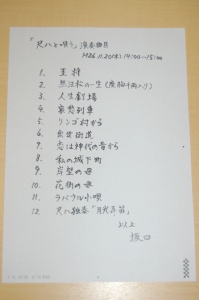 「尺八と唄う」演奏曲目
H26.11.20(木) 14:00~15:00
1. 王将
2. 無法松の一生(度胸千両入り)
3. 人生劇場
4. 哀愁列車
5. リンゴ村から
6. 出世街道
7. 恋は神代の昔から
8. 私の城下町
9. 岸壁の母
10. 花街の母
11. ラバウル小唄
12. 尺八独奏「月光弄笛」
以上
坂口